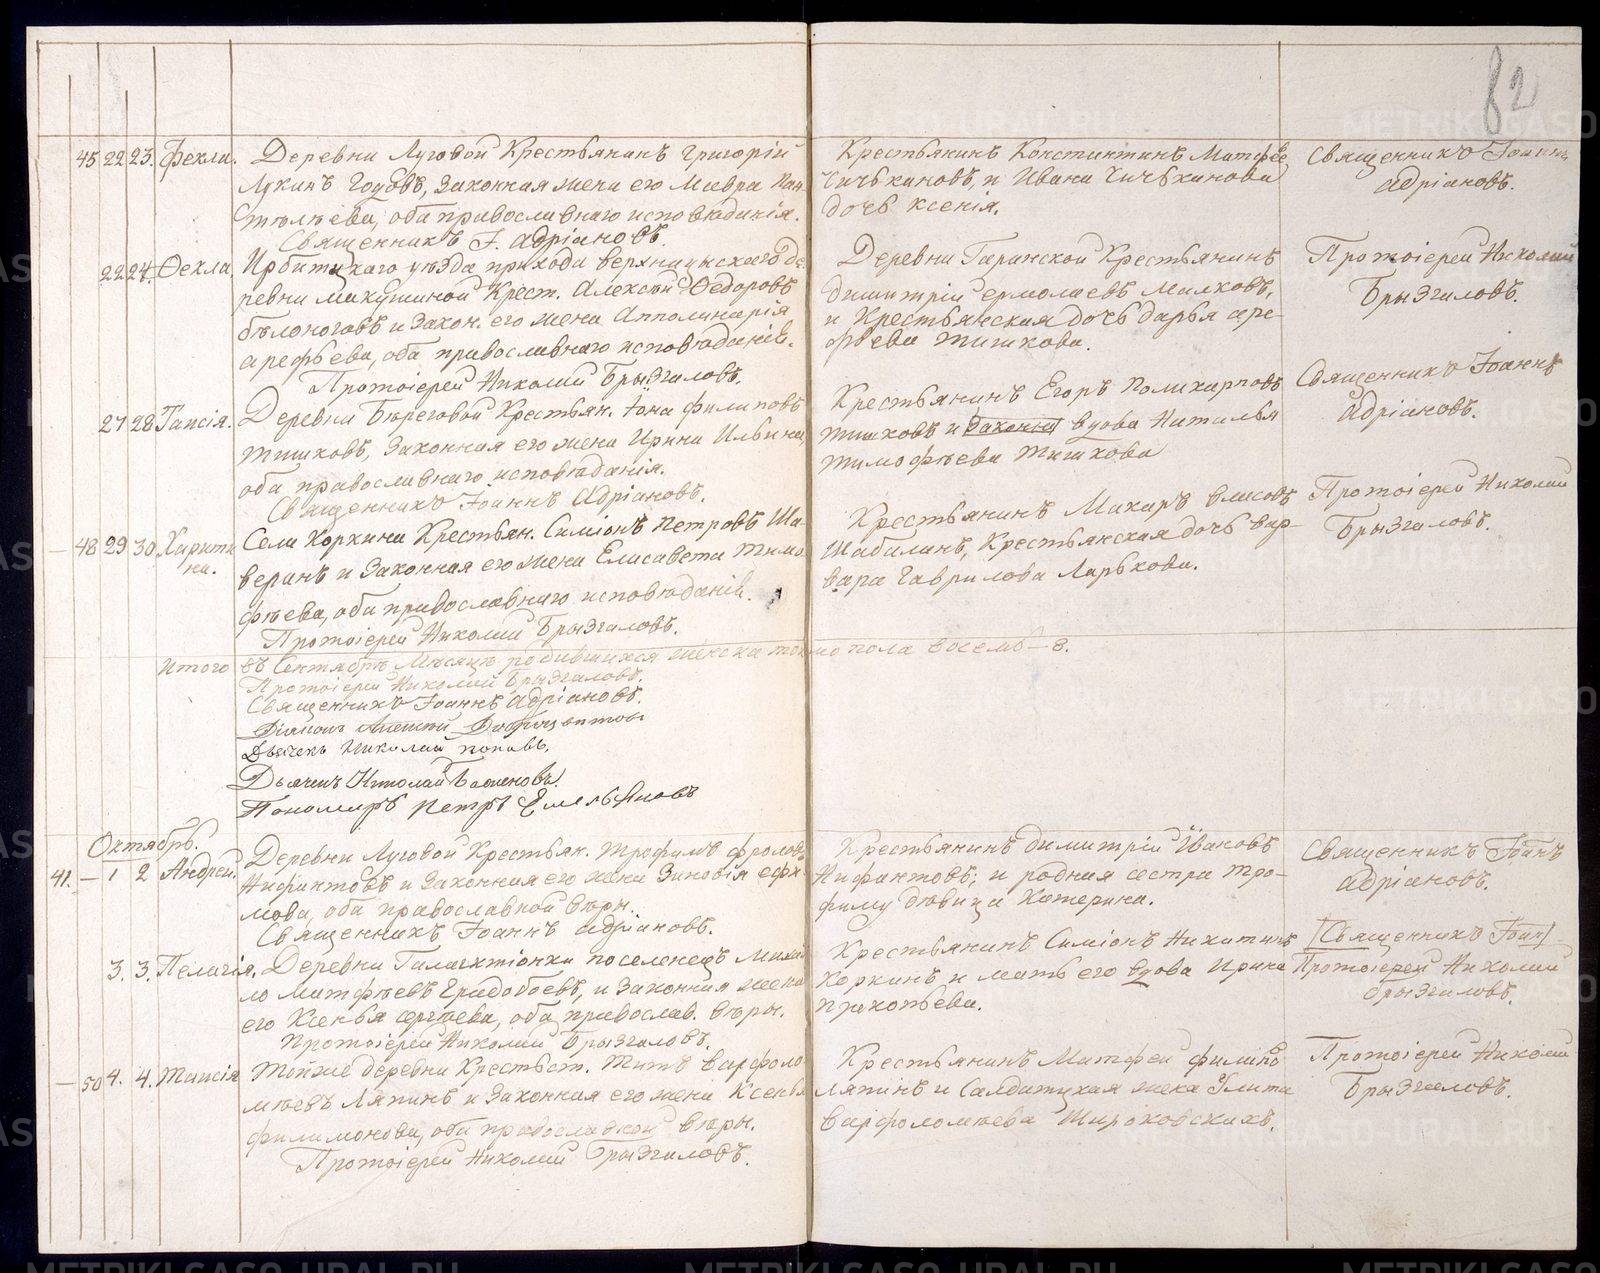 82
45 22 23. Фекла. Деревни Луговой Крестьянинъ Григорій
Лукинъ законная жена его Мавра Пан-
тѣлѣева, оба православнаго исповѣданія.
Священникъ І. Адріановъ.
Крестьянинъ Константинъ Матфее
и Ивана
дочь Ксенія.
Священникъ Іоаннъ
Адріановъ.
22 24. Ѳекла Ирбитскаго уѣзда прихода де-
ревни Макушиной Крест. Алексѣй Ѳедоровъ
Бѣлоноговъ и закон. его жена Апполинарія
Арефьева, оба православнаго исповѣданія.
Протоіерей Николай Брызгаловъ.
Деревни Гаранской Крестьянинъ
Димитрій Ермолаевъ Милковъ,
и Крестьянская дочь Дарья Аре-
фьева Тишкова.
Протоіерей Николай
Брызгаловъ.
27 28 Таисія. Деревни Береговой Крестьян. Іона Филиповъ
Тишковъ, законная его жена Ирина Ильина,
оба православнаго исповѣданія.
Священникъ Іоаннъ Адріановъ.
Крестьянинъ Егоръ Поликарповъ
Тишковъ и вдова Наталья
Тимофѣева Тишкова
Священникъ Іоаннъ
Адріановъ.
48 29 30. Харити-
на.
Села Коркина Крестьян. Симіонъ Петровъ Ша-
веринъ и законная его жена Елисавета Тимо-
фѣева, оба православнаго исповѣданія.
Протоіерей Николай Брызгаловъ.
Крестьянинъ Макаръ Власовъ
Шабалинъ, Крестьянская дочь Вар-
вара Гаврилова Ларькова.
Протоіерей Николай
Брызгаловъ.
Итого въ Сентябрѣ Мѣсяцѣ родившихся женска пола восемь – 8.
Протоіерей Николай Брызгаловъ.
Священникъ Іоаннъ Адріановъ.
Діаконъ Алексѣй
Дьячекъ Николай Поповъ.
Дьячекъ Николай
Пономарь Петръ Емельяновъ
Октябрь.
41. – 1 2 Андрей. Деревни Луговой Крестьян. Трофимъ Фроловъ
Нифантовъ и законная его жена Зиновія Ефи-
мова, оба православной вѣры.
Священникъ Іоаннъ Адріановъ.
Крестьянинъ Димитрій Иваковъ
Нифантовъ; и родная сестра Тро-
фиму дѣвица Катерина.
Священникъ Іоаннъ
Адріановъ.
3. 3. Пелагія. Деревни поселенецъ Михай-
ло Матфѣевъ Градобоевъ, и законная жена
его Ксенья Сергѣева, оба православ. вѣры.
Протоіерей Николай Брызгаловъ.
Крестьянинъ Симіонъ Никитинъ
Коркинъ и мать его вдова Ирина
Прокопьева.
Священникъ Іоан
Протоіерей Николай
Брызгаловъ.
– 50 4. 4. Таисія Тойже деревни Крестьян. Титъ Варфоло-
мѣевъ Ляпинъ и законная его жена Ксенья
Филимонова, оба православной вѣры.
Протоіерей Николай Брызгаловъ.
Крестьянинъ Матфей Филипо
Ляпинъ и Салдатская жена Улита
Варфоломѣева Широковскихъ.
Протоіерей Николай
Брызгаловъ.